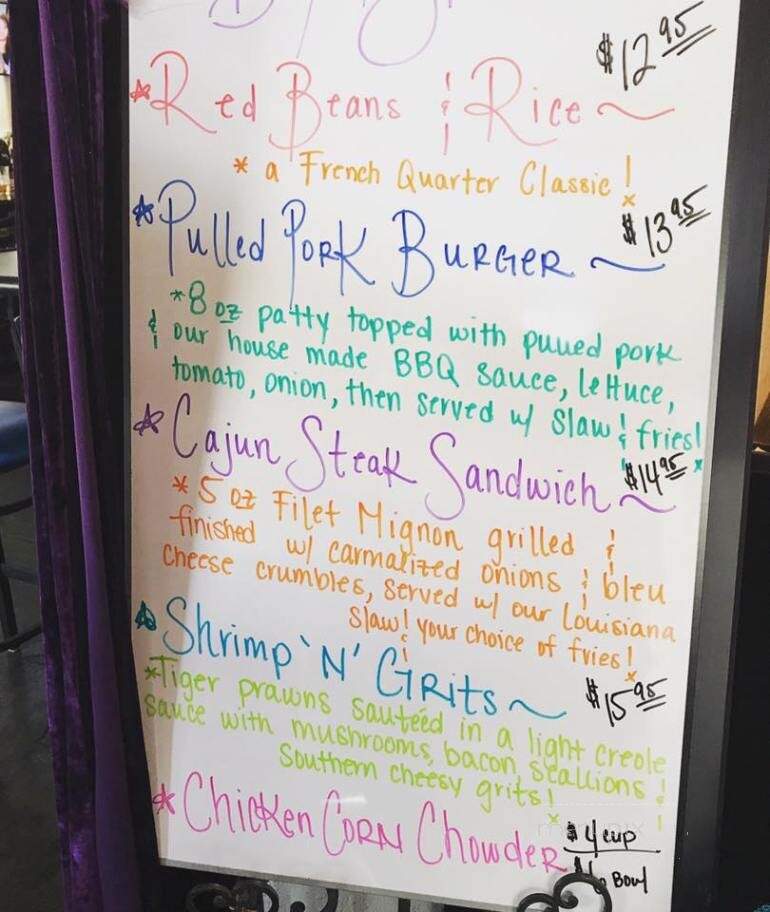 $12.95
*Red Beans & Rice ~
* a French Quarter Classic!
$13.95
*Pulled Pork BURGER ~
*8 oz patty topped with pulled pork
& our house made BBQ sauce, lettuce,
tomato, onion, then served w/ slaw & fries!
*Cajun Steak Sandwich ~ $14.95
*5 oz Filet Mignon grilled &
finished w/ carmalized onions & bleu
cheese crumbles, served w/ our Louisiana
slaw & your choice of fries!
*Shrimp 'N' GRits ~ $15.95
*Tiger prawns sautéed in a light creole
sauce with mushrooms, bacon, scallions &
Southern cheesy grits!
*Chicken CORN Chowder $4 cup
Bowl